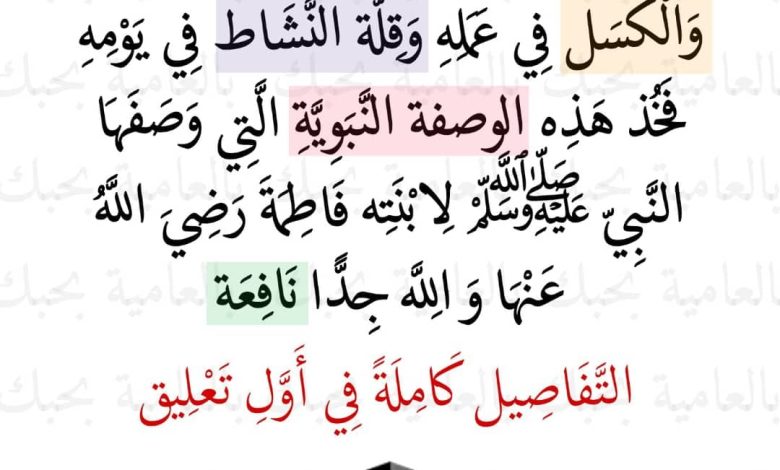 وَالْكَسَل فِي عَمَلِهِ وَقِلَّة النَّشَاط فِي يَوْمِهِ
فَخُذ هَذِه الوصفة النَّبَوِيَّةِ الَّتِي وَصَفَهَا
النَّبِيّ ﷺ لِابْنَتِه فَاطِمَةَ رَضِيَ اللَّهُ
عَنْهَا وَ اللَّه جِدًّا نَافِعَة
التَّفَاصِيل كَامِلَةً فِي أَوَّلِ تَعْلِيق
بالعامية بحبك